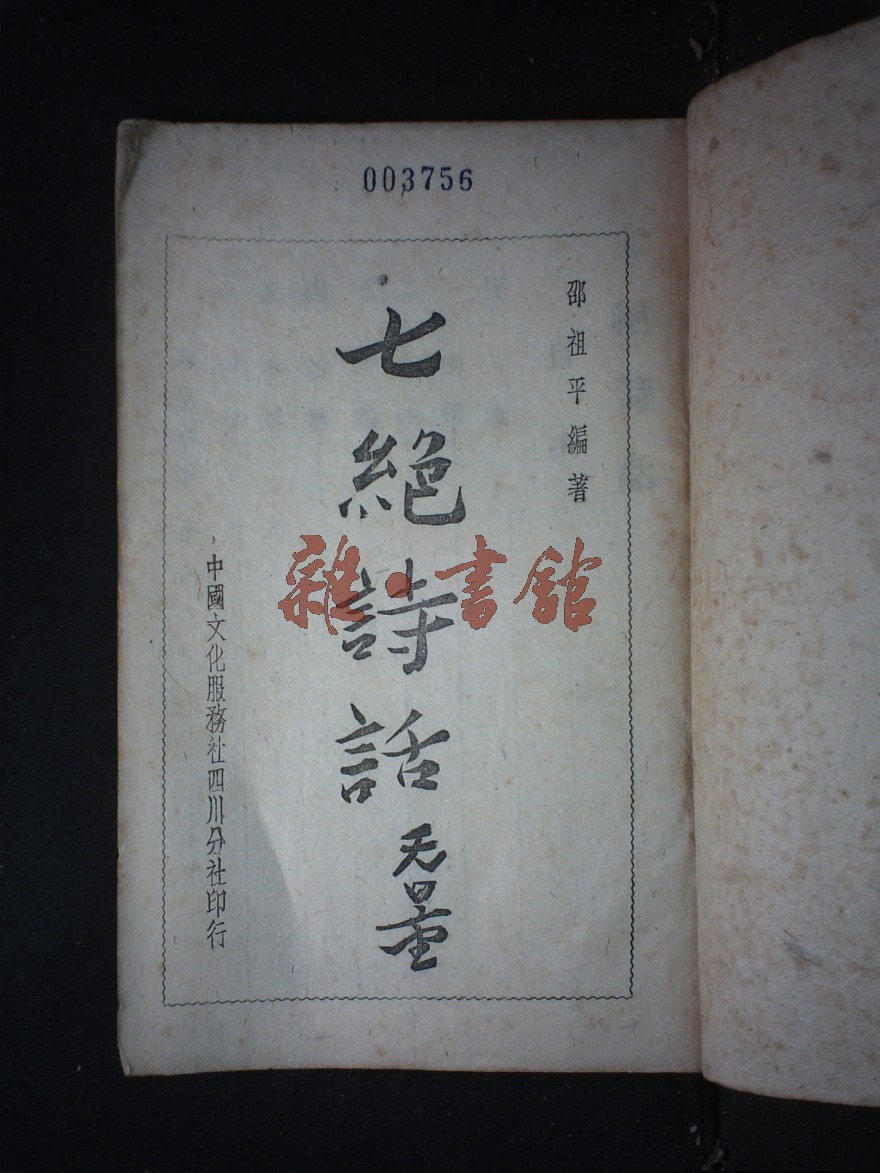 003756
邵祖平編著
七絕詩話
无量
中國文化服務社四川分社印行
雜·書館